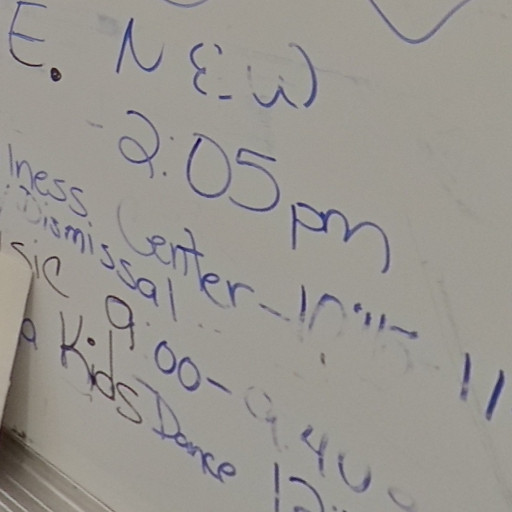 E. NEW
2:05pm
lness Center-10:45- 11
Dismissal
sic 9:00-9:40
a Kids Dance 12: